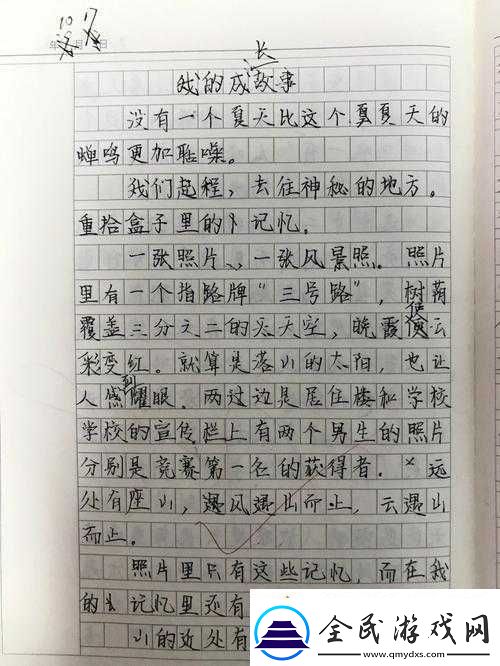 10 17
年 月 日
我的成长故事
没有一个夏天比这个夏夏天的
蝉鸣更加聒噪。
我们起程，去往神秘的地方。
重拾盒子里的记忆。
一张照片，一张风景照。照片
里有一个指路牌“三号路”，树荫
覆盖三分之二的天空，晚霞使云
彩变红。就算是落山的太阳，也让
人感到耀眼。两过边是居住楼和学校
学校的宣传栏上有两个男生的照片
分别是竞赛第一名的获得者。远
处有座山，遇风遇山而止，云遇山
而止。
照片里只有这些记忆，而在我
的记忆里还有
山的近处有
全民游戏网
www.qmydxs.com